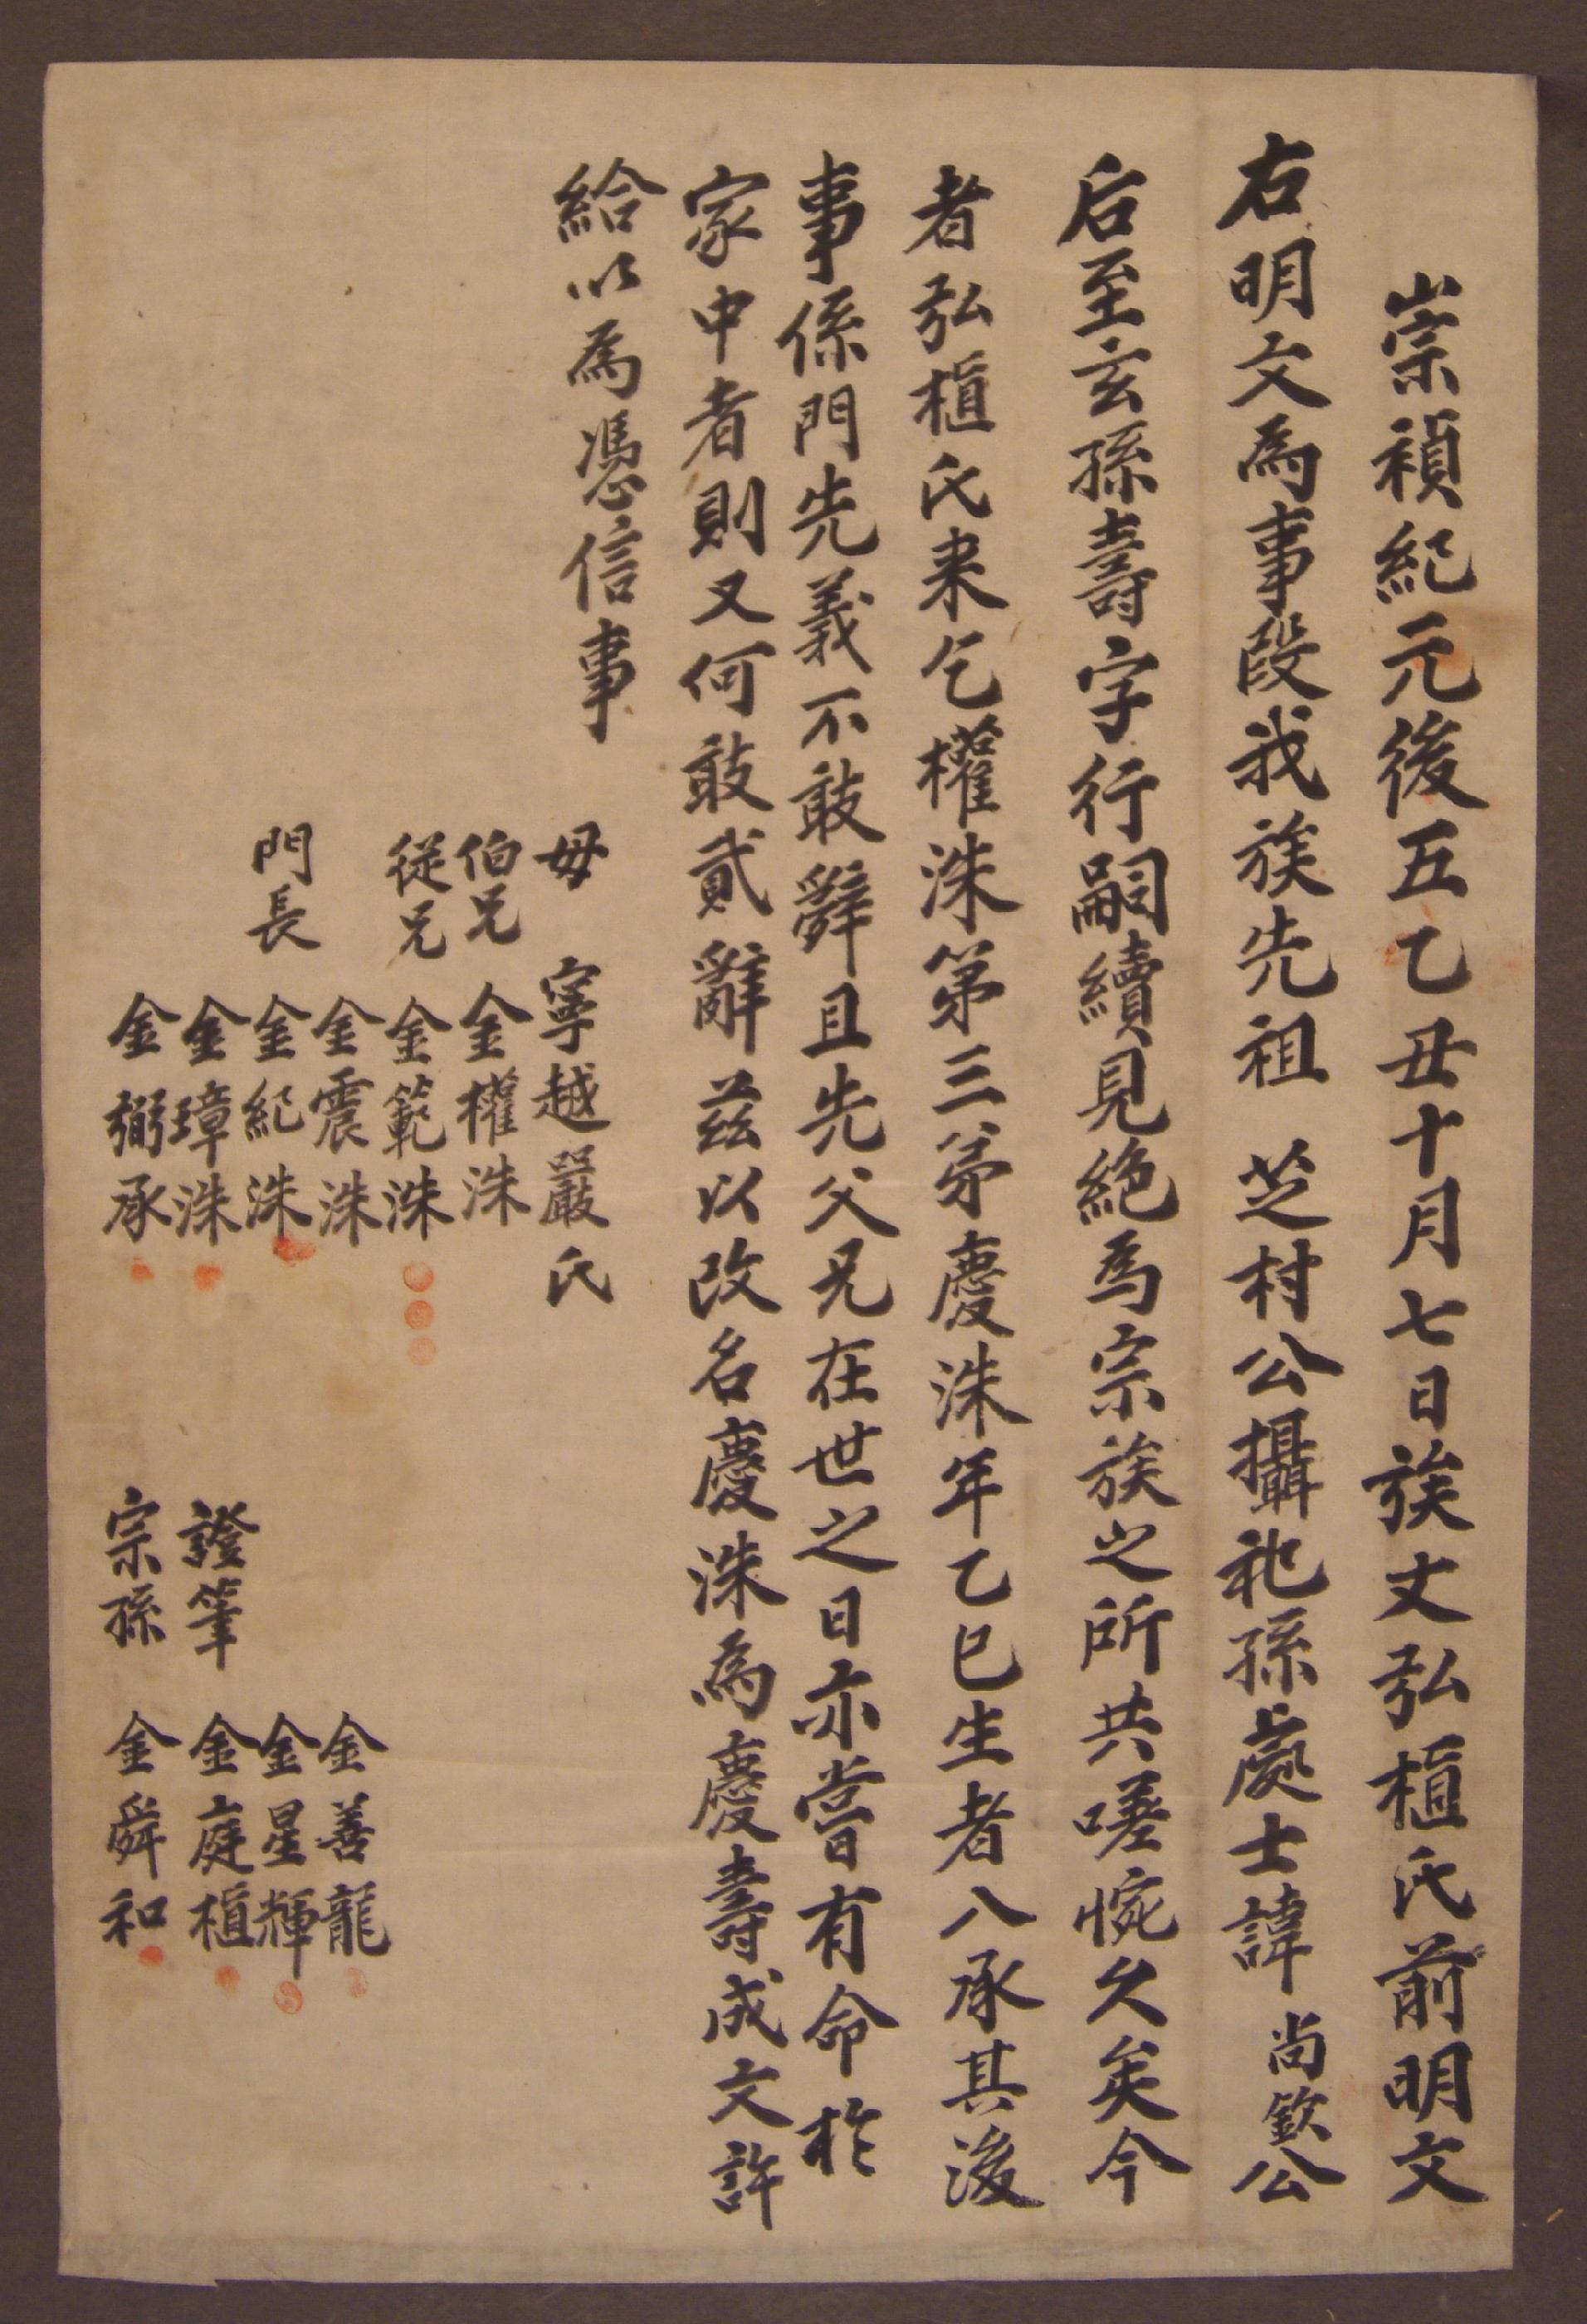 崇禎紀元後五乙丑十月七日族丈弘楦氏前明文
右明文爲事段我族先祖 芝村公攝祀孫處士諱尚欽公
后至玄孫壽字行嗣續見絶爲宗族之所共嗟惋久矣今
者弘楦氏来乞權洙第三弟慶洙年乙巳生者八承其後
事係門先義不敢辭且先父兄在世之日亦嘗有命於
家中者則又何敢貳辭玆以改名慶洙爲慶壽成文許
給以爲憑信事
母 寧越嚴氏
伯兄 金權洙
從兄 金範洙
金震洙
門長 金紀洙
金璋洙
金弼承
金善龍
金星輝
證筆 金庭楦
宗孫 金舜和